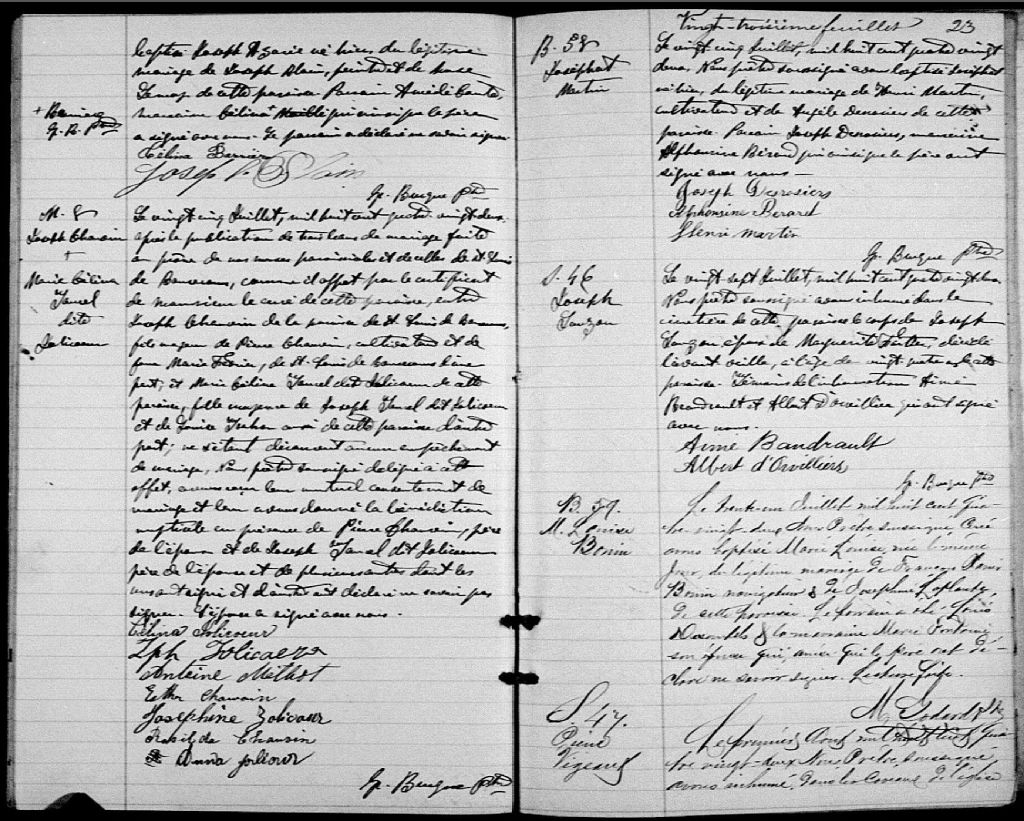 baptisé Joseph Azarie né hier, du légitime
mariage de Joseph Alain, peintre et de
de cette paroisse Parrain Amédé
+ Bernier marraine Célina + Maillé qui ainsi que le père
G. B. Ptre a signé avec nous. Le parrain a déclaré ne savoir signer
Célina Bernier
Joseph Alain
G. Burque Ptre
M. 8
Joseph Chauvin
+
Marie Célina
Janel
dite
Jolicoeur
Le vingt cinq Juillet, mil huit cent quatre vingt deux
après la publication de trois bans de mariage faite
au prône de nos messes paroissiales et de celles de St Louis
de comme il appert par le certificat
de monsieur le curé de cette paroisse, entre
Joseph Chauvin de la paroisse de St Louis de
fils majeur de Pierre Chauvin, cultivateur et de
feue Marie de St Louis de d'une
part; et Marie Célina Janel dit Jolicoeur de cette
paroisse, fille majeure de Joseph Janel dit Jolicoeur
et de Louise aussi de cette paroisse d'autre
part; ne s'étant découvert aucun empêchement
de mariage, Nous prêtre soussigné délégué à cet
effet, avons reçu leur mutuel consentement de
mariage et leur avons donné la bénédiction
nuptiale en présence de Pierre Chauvin, père
de l'époux et de Joseph Janel dit Jolicoeur
père de l'épouse et de plusieurs autres dont les
uns ont signé et d'autres ont déclaré ne savoir pas
signer. L'épouse a signé avec nous.
Célina Jolicoeur
Jph Jolicoeur
Antoine Methot
Esther Chauvin
Josephine Jolicoeur
Chauvin
Anna Jolicoeur
G. Burque Ptre
Vingt-troisième feuillet 23
B. 58
Josephat
Martin
Le vingt cinq Juillet, mil huit cent quatre vingt
deux, Nous prêtre soussigné avons baptisé Josephat
né hier, du légitime mariage de Henri Martin,
cultivateur et de Angèle Derosiers de cette
paroisse. Parrain Joseph Derosiers, marraine
Alphonsine Bérard qui ainsi que le père ont
signé avec nous —
Joseph Derosiers
Alphonsine Berard
Henri Martin
G. Burque Ptre
S. 46
Joseph
Lauzon
Le vingt sept Juillet, mil huit cent quatre vingt deux
Nous prêtre soussigné avons inhumé dans le
cimetière de cette paroisse le corps de Joseph
Lauzon époux de Marguerite décédé
l'avant veille, à l'âge de vingt quatre ans de cette
paroisse. Témoins de l'inhumation Aimé
Beaudrault et Albert D'Orvilliers qui ont signé
avec nous.
Aimé Baudrault
Albert d'Orvilliers
G. Burque Ptre
B. 59.
M. Louise
Bonin
Le trente-un Juillet mil huit cent qua-
tre vingt deux Nous Prêtre soussigné Curé
avons baptisé Marie Louise, née le même
jour, du légitime mariage de François
Bonin navigateur & de Josephine Laplante
de cette paroisse. Le parrain a été Louis
& la marraine Marie
son épouse qui, ainsi que le père ont dé-
claré ne savoir signer. Lecture faite.
M. Godard Ptre
S. 47.
Pierre
Vigeant
Le premier Août mil huit cent qua-
tre vingt-deux Nous Prêtre, soussigné
avons inhumé, dans le caveau de l'église